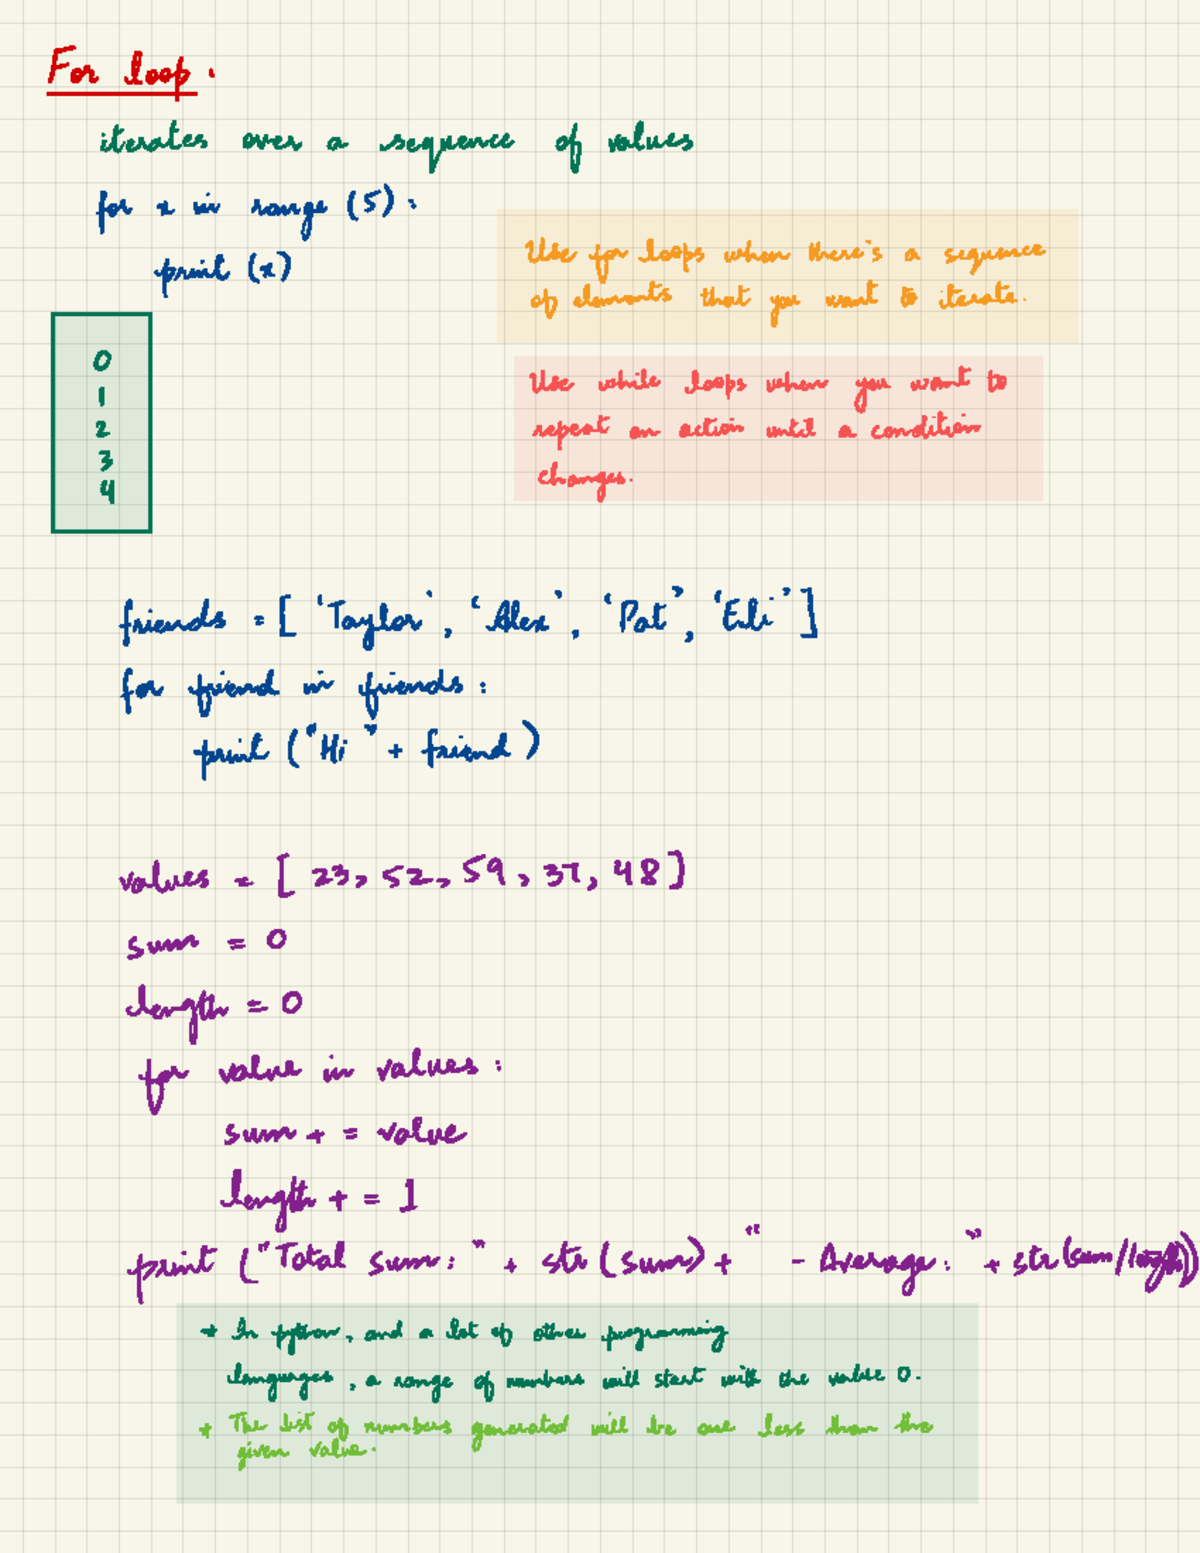 For loop.
iterates over a sequence of values
for x in range (5):
print (x)
Use for loops when there's a sequence
of elements that you want to iterate.
0
1
2
3
4
Use while loops when you want to
repeat an action until a condition
changes.
friends = [ 'Taylor', 'Alex', 'Pat', 'Eli' ]
for friend in friends:
print ("Hi " + friend )
values = [ 23, 52, 59, 37, 48 ]
sum = 0
length = 0
for value in values :
sum + = value
length + = 1
print ("Total sum: " + str (sum) + " - Average: " + str (sum/length))
* In python, and a lot of other programming
languages, a range of numbers will start with the value 0.
* The list of numbers generated will be one less than the
given value.